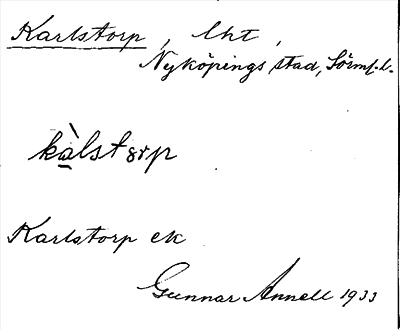 Karlstorp, lht,
Nyköpings stad, Sörml. l.
kàlstorp
Karlstorp ek
Gunnar Annell 1933